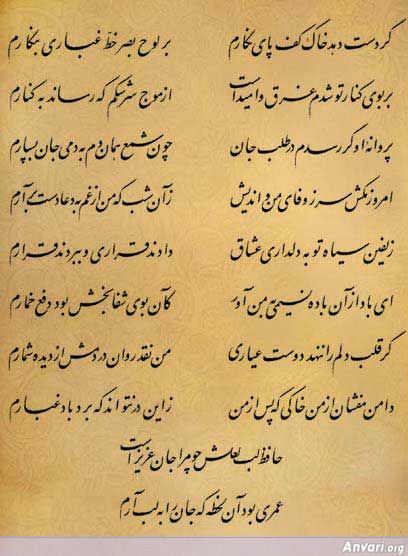 گر دست دهد خاک کف پای نگارم بر لوح بصر خطّ غباری بنگارم
بر بوی کنار تو شدم غرق و امید است از موج سرشکم که رساند به کنارم
پروانهٔ او گر رسدم در طلب جان چون شمع همان دم به دمی جان بسپارم
امروز مکش سر ز وفای من و اندیش زان شب که من از غم به دعا دست برآرم
زلفین سیاه تو به دلداری عشاق دادند قراری و ببردند قرارم
ای باد از آن باده نسیمی به من آور کآن بوی شفابخش بود دفع خمارم
گر قلب دلم را ننهد دوست عیاری من نقد روان در دمش از دیده شمارم
دامن مفشان از من خاکی که پس از من زاین در نتواند که برد باد غبارم
حافظ لب لعلش چو مرا جان عزیز است
عمری بود آن لحظه که جان را به لب آرم
Anvari.org